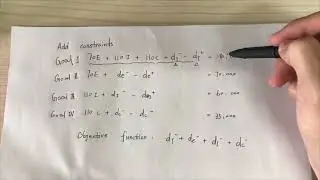 Add constraints
Goal I 70E + 110I + 110C + d₁⁻ - d₁⁺ =
Goal II 70E + de⁻ - de⁺ = 70,000
Goal III 110I + = 60,000
Goal IV 110C + dc⁻ - dc⁺ = 35,000
Objective function : d₁⁻ + de⁻ + dı⁻ + dc⁻